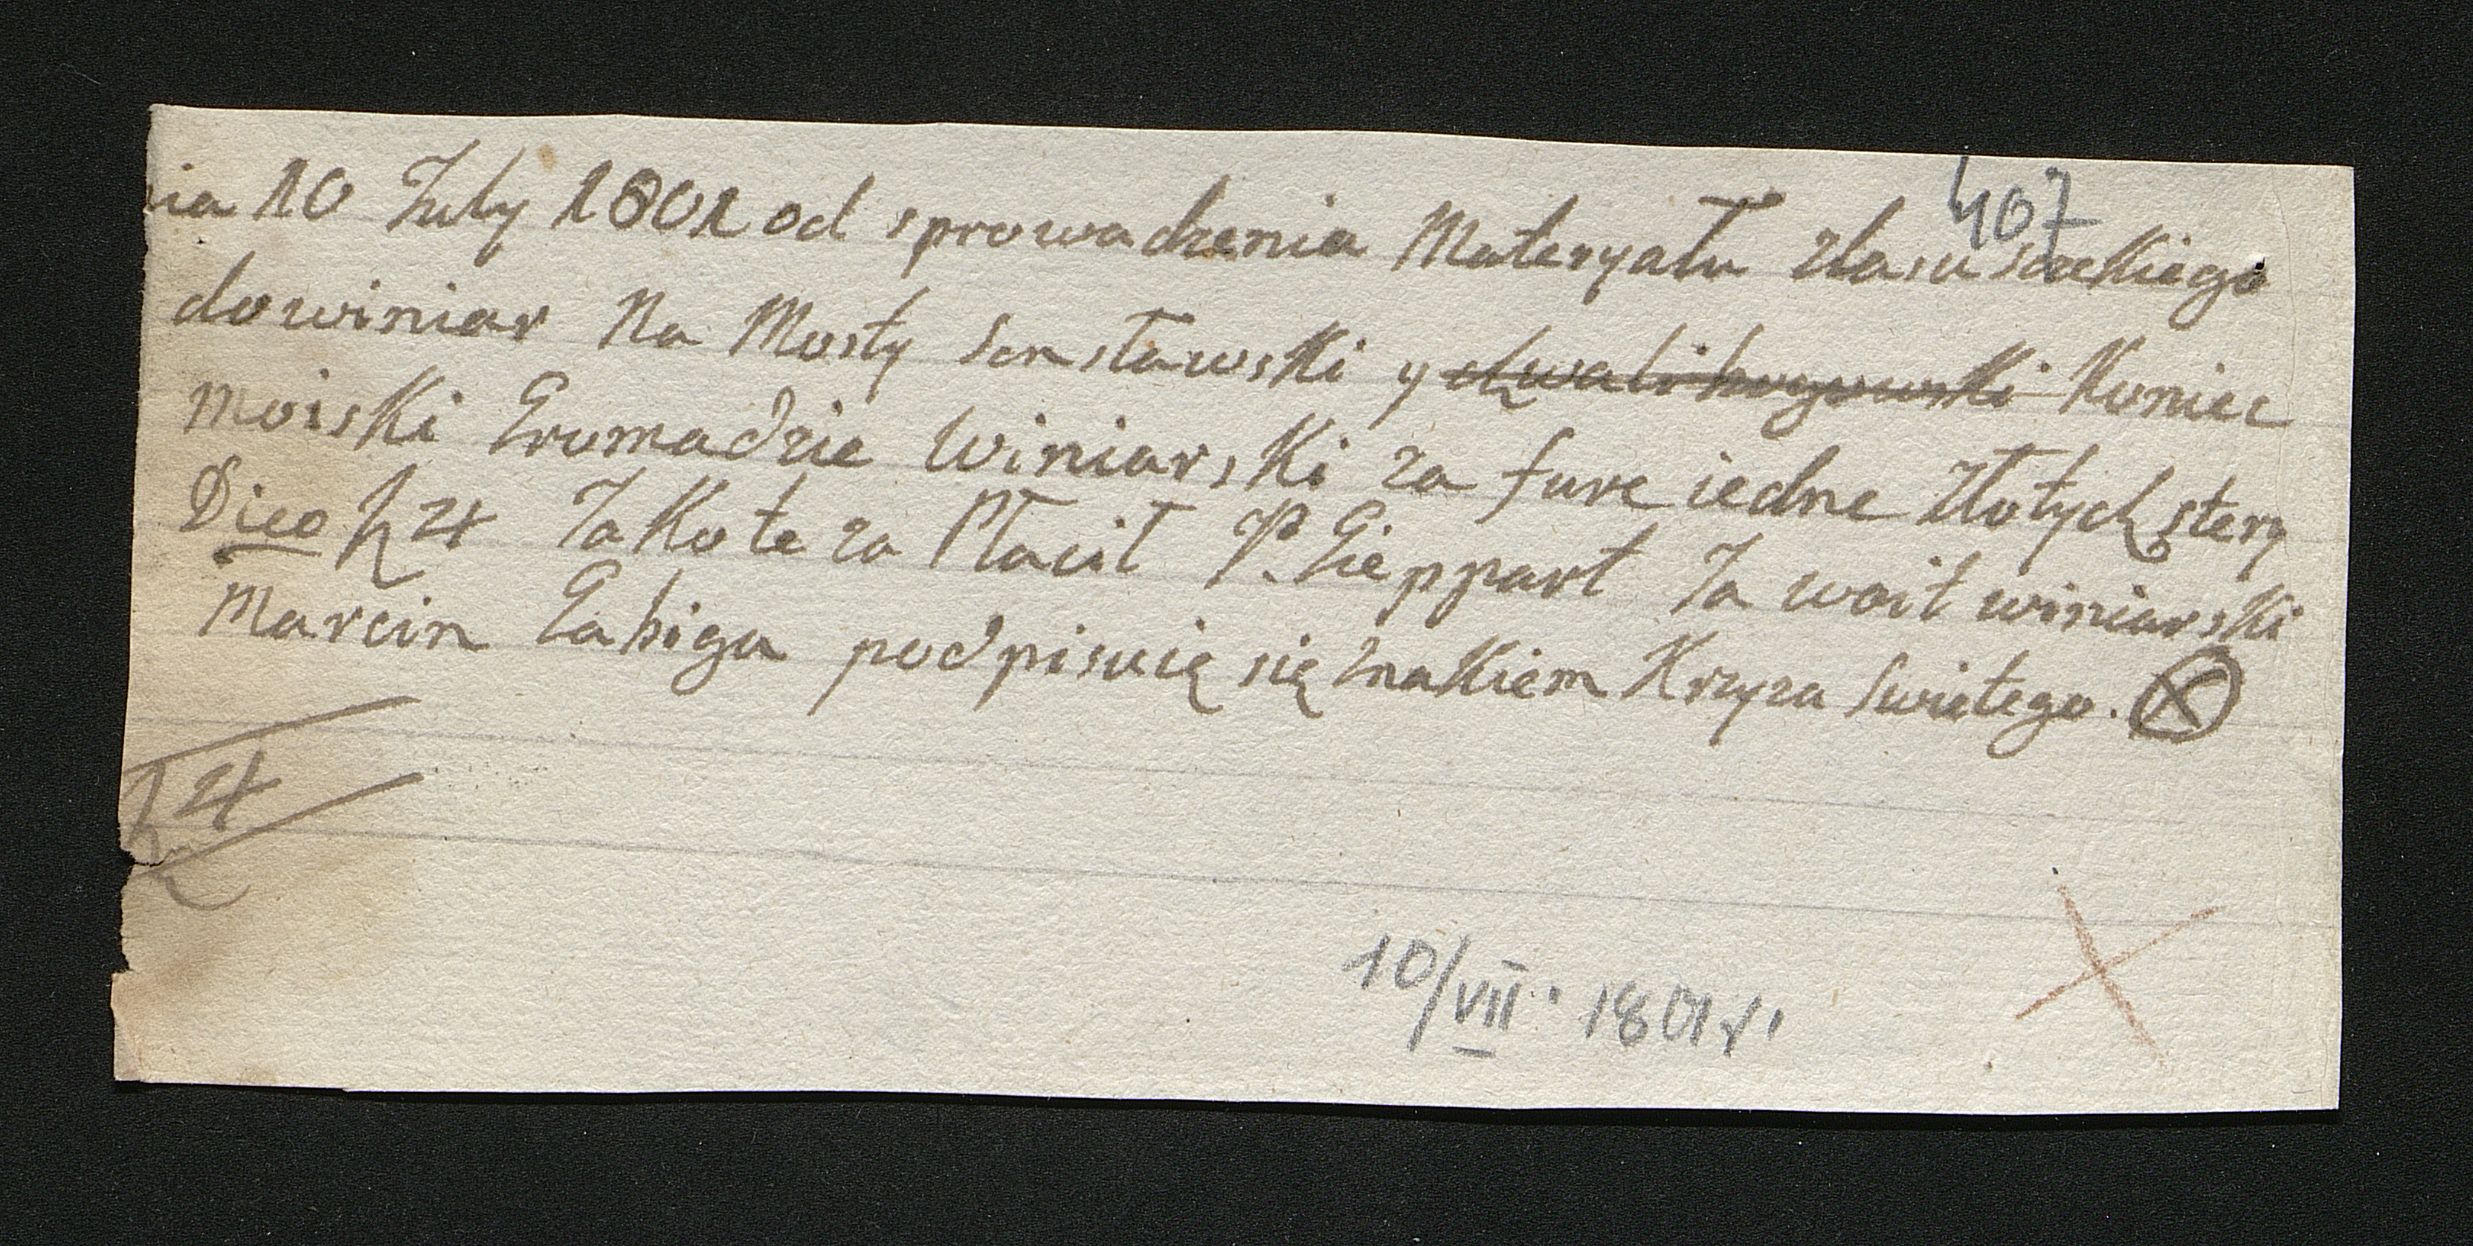 407
nia 10 July 1801 od sprowadzenia Materyału zlasu
dowiniar Na Mosty y Koniec
moiski Gromadzie Winiarski za fure iedne złotych sztery
Dico f 24 Jakote za Płacił P. Gieppart Ja woit winiarski
Marcin Gabiga podpisuię się znakiem Krzyza Swietego.
f 24
10/VII. 1801 r.